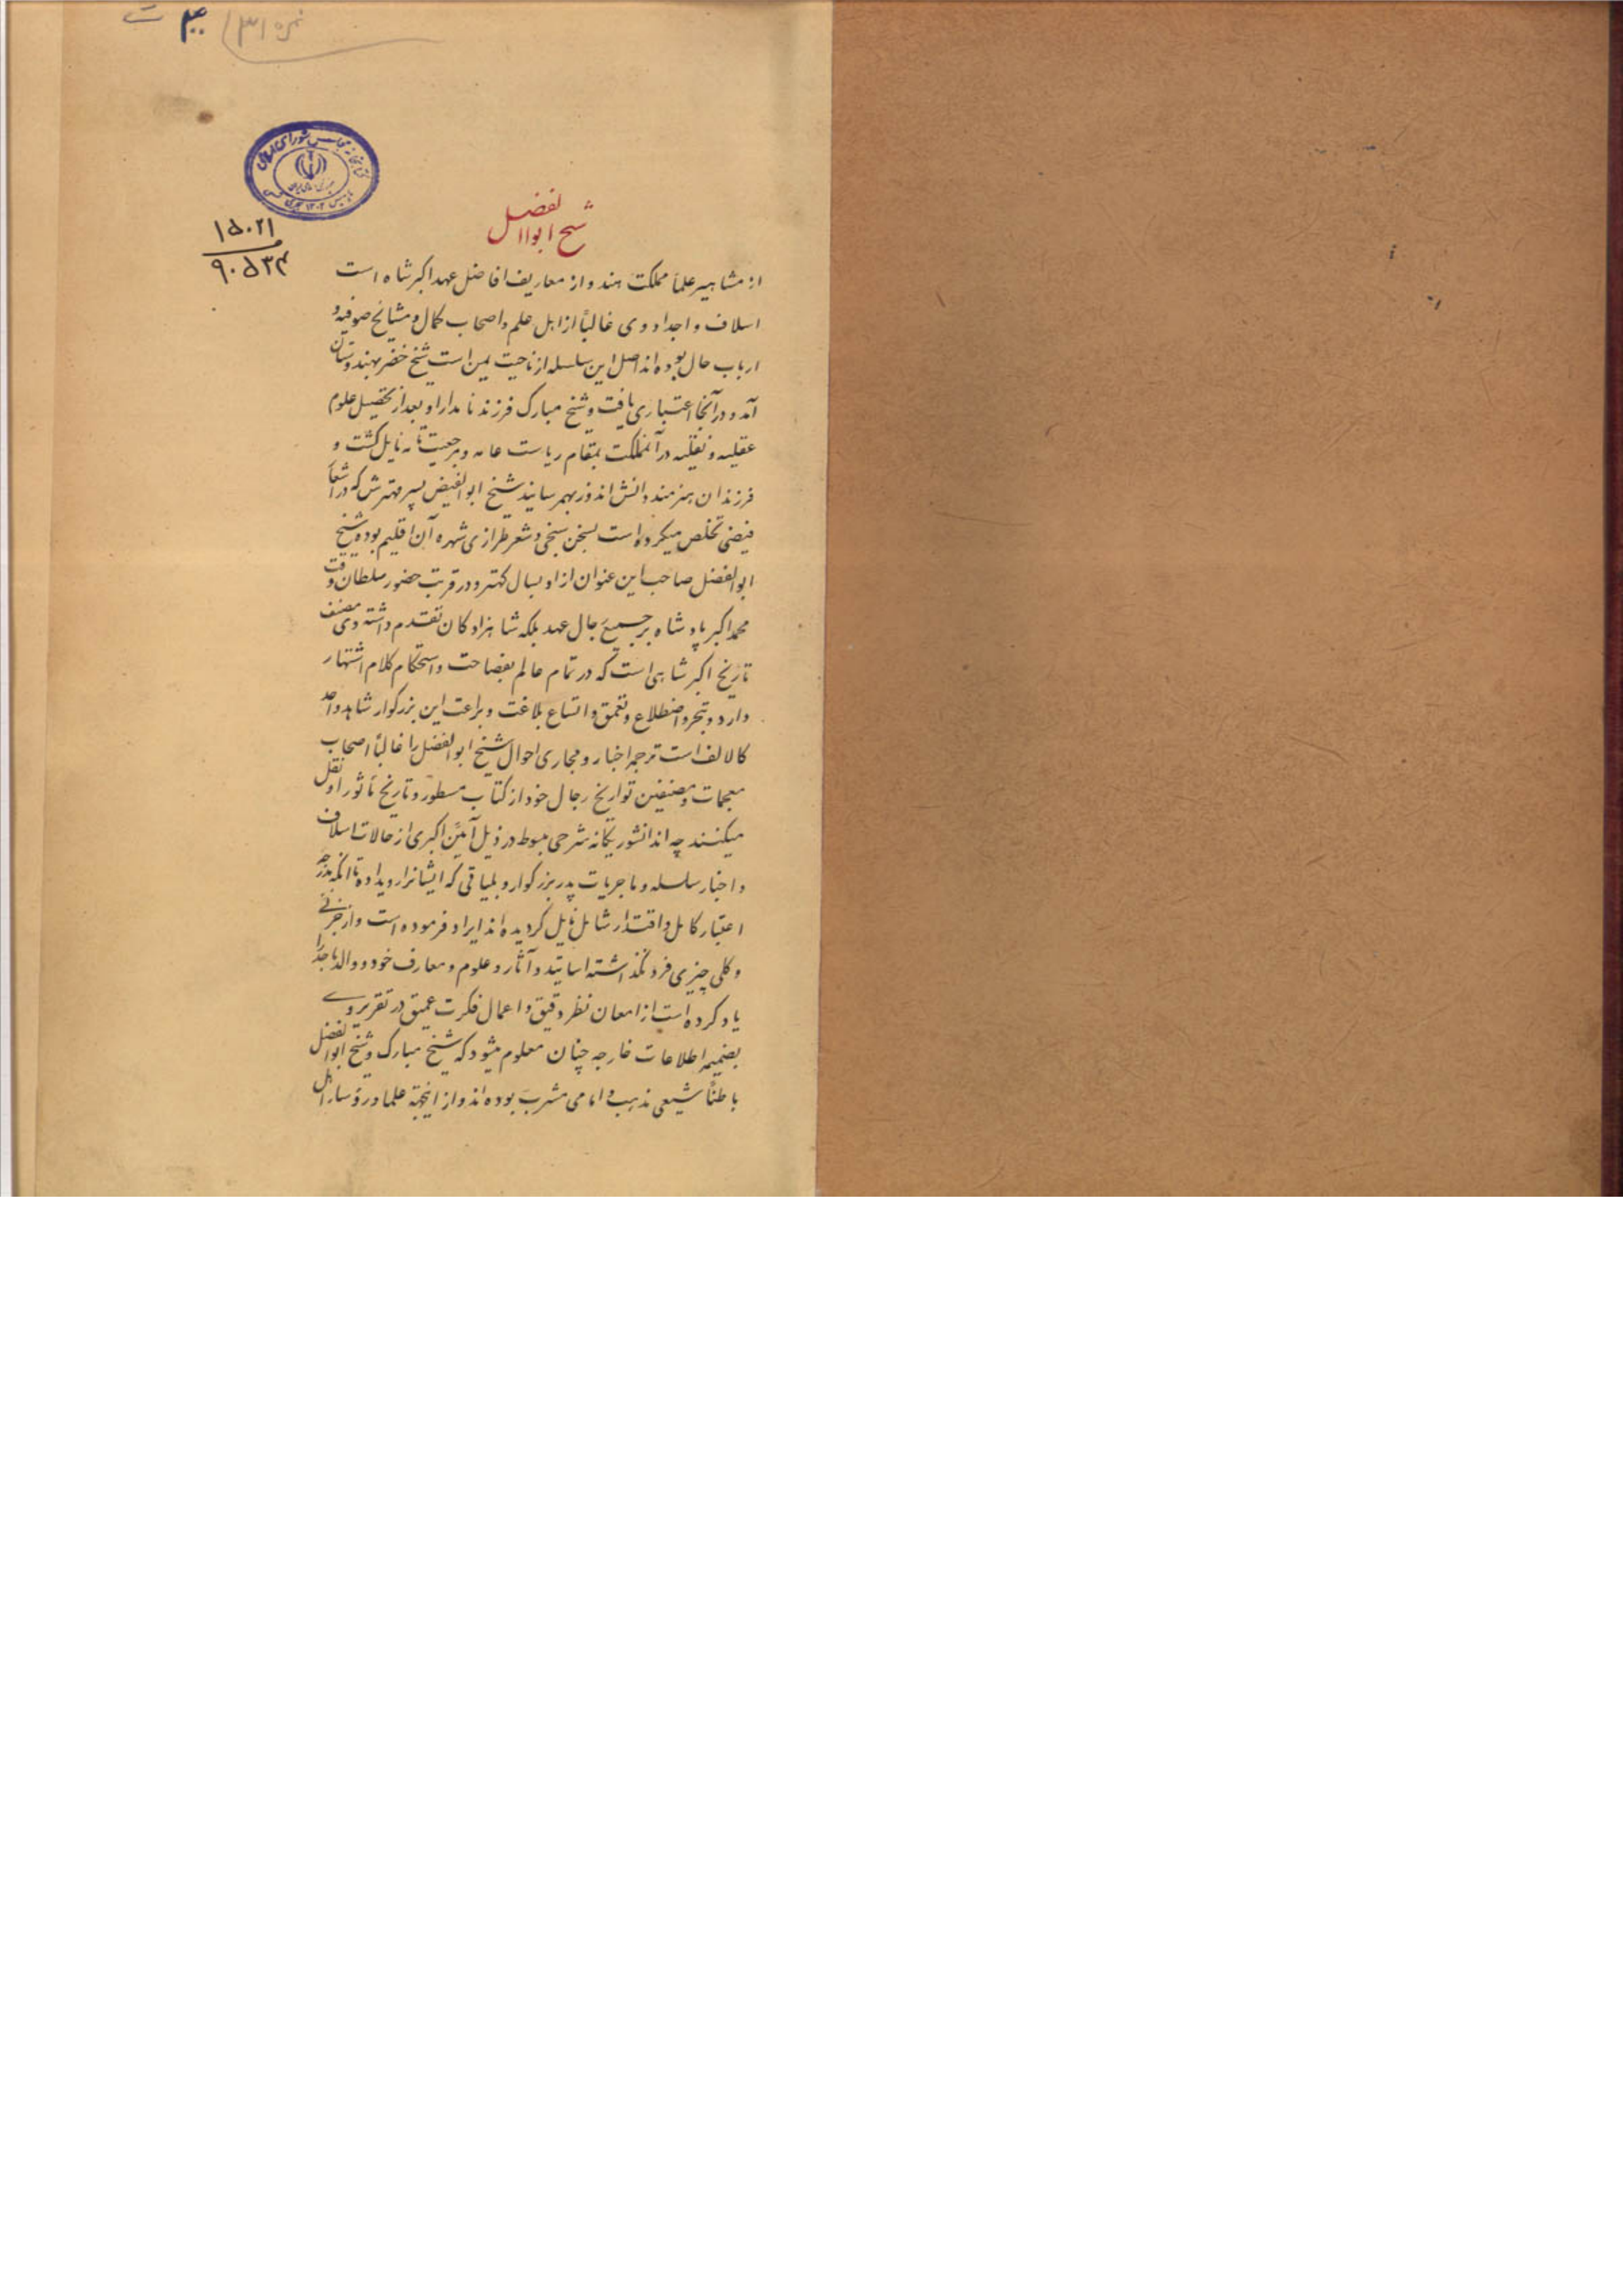 نمره ۳۱
کتابخانه مجلس شورای اسلامی
۱۵۰۲۱
۹۰۵۳۴
شیخ ابوالفضل
از مشاهیر علماء مملکت هند و از معاریف افاضل عهد اکبرشاه است
اسلاف و اجداد وی غالباً از اهل علم و اصحاب کمال و مشایخ صوفیه و
ارباب حال بوده‌اند اصل این سلسله از ناحیت یمن است شیخ خضر بهندوستان
آمد و در آنجا اعتباری یافت و شیخ مبارک فرزند نامدار او بعد از تحصیل علوم
عقلیه و نقلیه در آنمملکت بمقام ریاست عامه و مرجعیت تامه نایل کشت و
فرزندان هنرمند دانش اندوز بهمرسانید شیخ ابوالفیض پسر مهترش که در اشعار
فیضی تخلص میکرده است بسخن سنجی و شعر طرازی شهره آن اقلیم بوده شیخ
ابوالفضل صاحب این عنوان از او بسال کهتر و در قربت حضور سلطان وقت
محمد اکبر پادشاه بر جمیع رجال عهد بلکه شاهزادکان تقدم داشته وی مصنف
تاریخ اکبرشاهی است که در تمام عالم بفصاحت و استحکام کلام اشتهار
دارد و بتبحر و اضطلاع و تعمق و اتساع بلاغت و براعت این بزرکوار شاهد واحد
کالالف است ترجمه اخبار و مجاری احوال شیخ ابوالفضل را غالباً اصحاب
معجمات و مصنفین تواریخ رجال خود از کتاب مسطور و تاریخ مأثور او نقل
میکنند چه اندانشور یکانه شرحی مبسوط در ذیل آئین اکبری از حالات اسلاف
و اخبار سلسله و ماجریات پدر بزرکوار و بلیاتی که ایشانرا رویداده تا آنکه بدرجه
اعتبار کامل و اقتدار شامل نایل کردیده‌اند ایراد فرموده است و از جزئی
و کلی چیزی فرو نگذاشته اساتید و آثار و علوم و معارف خود و والد ماجد را
یاد کرده است از امعان نظر دقیق و اعمال فکرت عمیق در تقریر وی
بضمیمه اطلاعات خارجه چنان معلوم میشود که شیخ مبارک و شیخ ابوالفضل
باطناً شیعی مذهب و امامی مشرب بوده‌اند و از اینجهة علما و رؤسا اهل